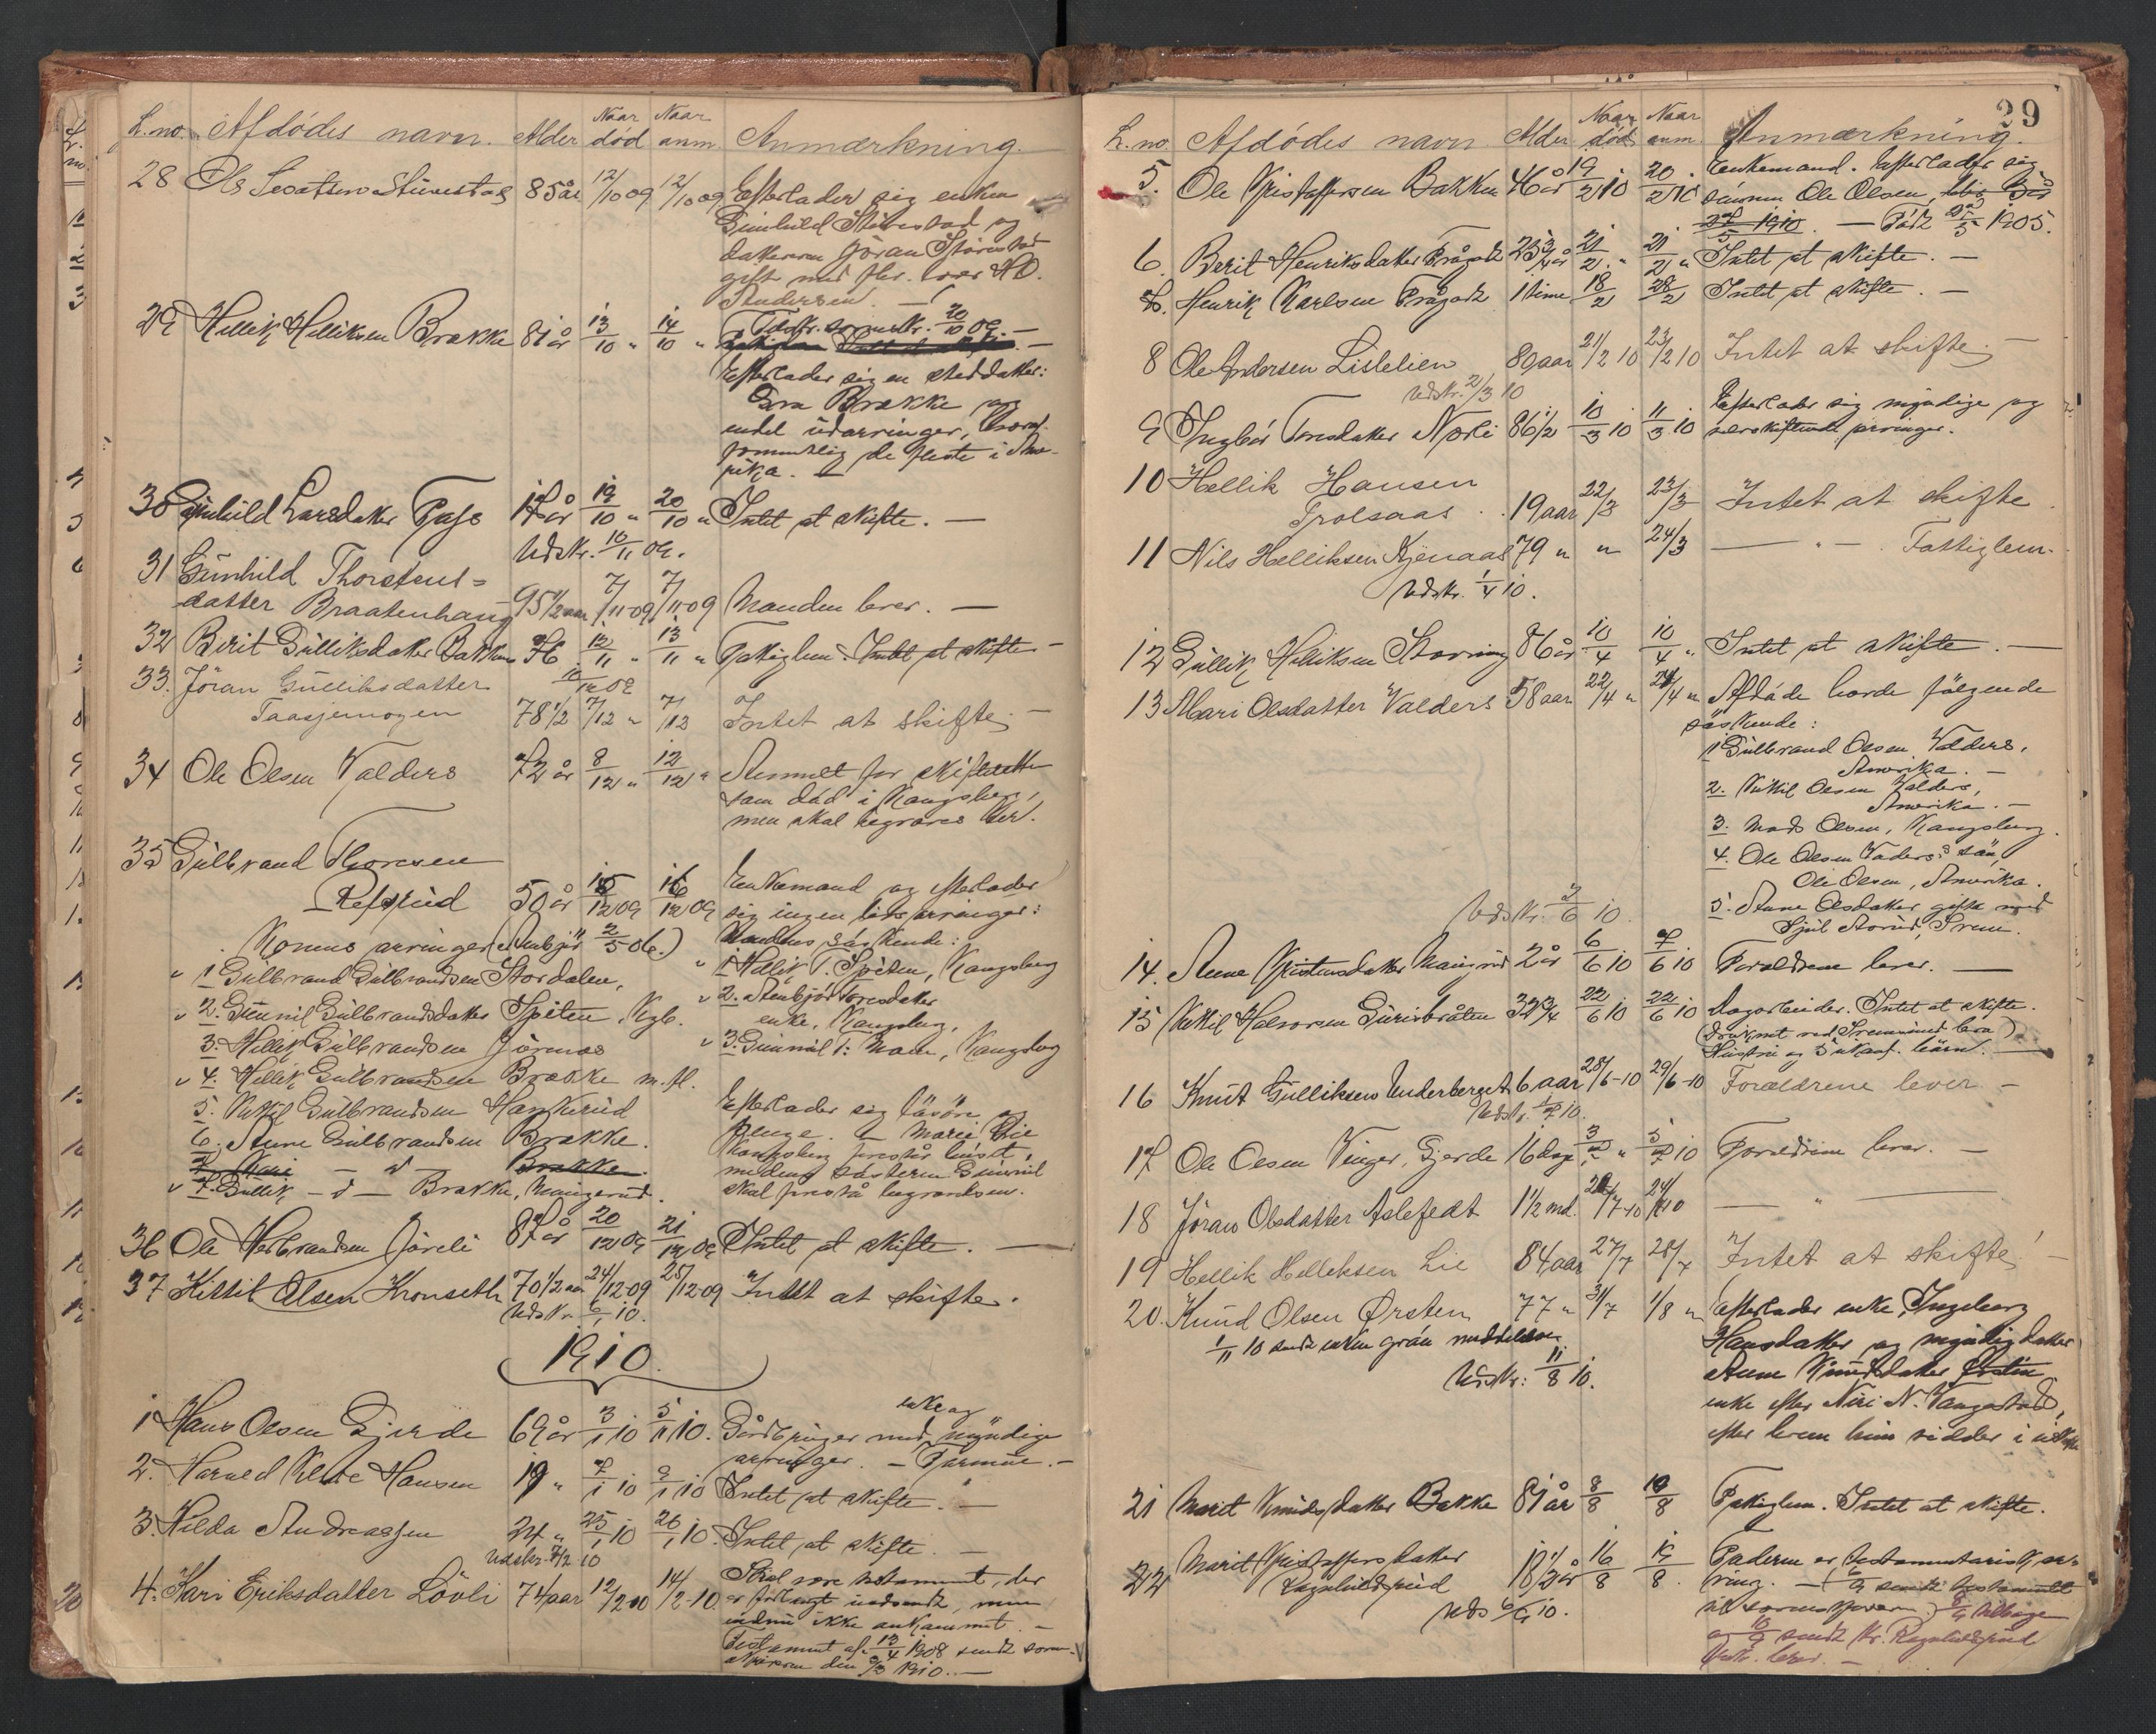 L. no. Afdödes navn. Alder Naar död Naar anm. Anmærkning.
28 Ole 85 år 12/10 09 12/10 09 Efterlader sig enken
Gunhild Stövestad og
datteren Jöran Stövestad
gift med
Andersen. —
29 Hellik Helliksen Brække 81 år 13/10 " 14/10 "
20/10 09. —
Efterlader sig en steddatter:
Brække og
endel udarvinger, hvoraf
formentlig de fleste i Ame-
rika. —
30 Gunhild Larsdatter 17 år 19/10 " 20/10 " Intet at skifte. —
Udskr. 10/11 09.
31 Gunhild Thorstens-
datter Braatenhaug 95 1/2 aar 7/11-09 7/11-09 Manden lever. —
32 Berit Gulliksdatter Bakken 76 12/11 " 13/11 " Fattiglem. Intet at skifte —
10/12 09
33. Jöran Gulliksdatter
Taasjemogen 78 1/2 7/12 " 7/12 Intet at skifte. —
34 Ole Olsen Valders 72 år 8/12 " 12/12 " Anmeldt for skifteretten
som död i Kongsberg,
men skal begraves her.
35 Gulbrand Thoresen
Refsrud 50 år 15/12 09 16/12 09 Enkemand og efterlader
sig ingen livsarvinger:
Konens arvinger ( 2/5 06.) Mandens söskende:
" 1 Gulbrand Gulbrandsen Stordalen, " 1 Hellik T. Spiten, Kongsberg
" 2. Gunnil Gulbrandsdatter Spiten, Kgb. " 2. Thoresdatter
enke, Kongsberg,
3. Hellik Gulbrandsen " 3. Gunnil T: Moen, Kongsberg
" 4. Hellik Gulbrandsen Brække m. fl.
5. Kittil Gulbrandsen Efterlader sig lösöre og
6. Anne Gulbrandsen Brække. penge. — Marie Lie
7. Kari — d — Brække. Kongsberg
" 7. Gullik — d — Brække, Maingerud. medens söstern Gunnil
skal forestå begravelsen.
36 Ole Herbrandsen 87 år 20/12 09 21/12 09 Intet at skifte. —
37 Kittil Olsen Kronseth 70 1/2 aar 24/12-09 28/12-09 Intet at skifte.
Udskr. 6/1 10.
1910.
1 Hans Olsen Gjerde 69 år 3/1 10 5/1 10. enke og
Gårdbruger med myndige
arvinger. —
2. Harald Hansen 19 " 7/1 10 9/1 10 Intet at skifte. —
3. Hilda Andreassen 24 " 25/1 10 26/1 10. Intet at skifte. —
Udskr. 7/2 10
4. Kari Eriksdatter Lövli 74 aar 12/2-10 14/2-10 Skal være testament, der
er forlangt indsendt, men
endnu ikke ankommet. —
Testament af 13/4 1908 sendt soren-
skriveren den 9/3 1910. —
29
L. no. Afdödes navn Alder Naar död Naar anm. Anmærkning.
5. Ole Kristoffersen Bakken 46 år 19/2 10 20/2 10 Enkemand. Efterlader sig
sönnen Ole Olsen,
1910. — Född 1905.
6. Berit Henriksdatter 23 3/4 år 21/2 " 21/2 " Intet at skifte. —
7. Henrik Karlsen 1 time 18/2 28/2 Intet at skifte. —
8 Ole Andersen Lislelien 80 aar 21/2 10 23/2 10 Intet at skifte. —
Udskr. 2/3 10
9 Ingbör Toresdatter Nörli 86 1/2 10/3 10 11/3 10 Efterlader sig myndige og
selvskiftende arvinger.
10 Hellik Hansen
Trolsaas 19 aar 22/3 23/3 Intet at skifte
11 Nils Helliksen Kjenaas 79 " " 24/3 — " — Fattiglem.
Udskr. 1/4 10.
12 Gullik Helliksen 86 år 10/4 10/4 " Intet at skifte. —
13 Mari Olsdatter Valders 58 aar 22/4 " 24/4 " Afdöde havde fölgende
söskende:
1 Gulbrand Olsen Valders,
Amerika. —
2. Kittil Olsen Valders,
Amerika. —
3. Mads Olsen, Kongsberg.
4. Ole Olsen Valders's sön,
Ole Olsen, Amerika.
5. Anne Olsdatter gift med
Udskr. 2/6 10.
14. Anne Kristensdatter Maingrud 2 år 6/6 10 7/6 10 Forældrene lever. —
15 Kittil Halvorsen Guribråten 32 3/4 22/6 10 22/6 10 Dagarbeider. Intet at skifte.
(Druknet ved )
Hustru og 3 ukonf. börn. —
16 Knut Gulliksen Underberget 6 aar 28/6-10 29/6-10 Forældrene lever —
Udskr. 1/7 10.
17 Ole Olsen Vinger, Gjerde 16 dage 3/7 " 5/7 10 Forældrene lever. —
18 Jöran Olsdatter Aslefedt 1 1/2 md. 20/7-10 24/7 10 — " —
19 Hellik Helliksen Lie 84 aar 27/7 28/7 Intet at skifte! —
20. Knud Olsen Ørsten 77 " 31/7 1/8 " Efterlader enke, Ingeborg
1/11 10 sendt enken grön meddelelse Hansdatter og myndig datter
Udskr: 11/8 10. Anne Knudsdatter Örsten
enke efter N. Vangestad,
efter hvem hun sidder i uskifte
21 Marit Knudsdatter Bakke 81 år 8/8 10/8 Fattiglem. Intet at skifte.
22 Marit Kristoffersdatter
Ragnhildsrud 18 1/2 år 16/8 19/8. Faderen er testamentarisk ar-
ving. — 6/9 sendt testamentet
Uds 6/9 10. til sorenskriveren. 8/9 tilbage
og 10/9 sendt Kr. Ragnhildsrud
lever. —